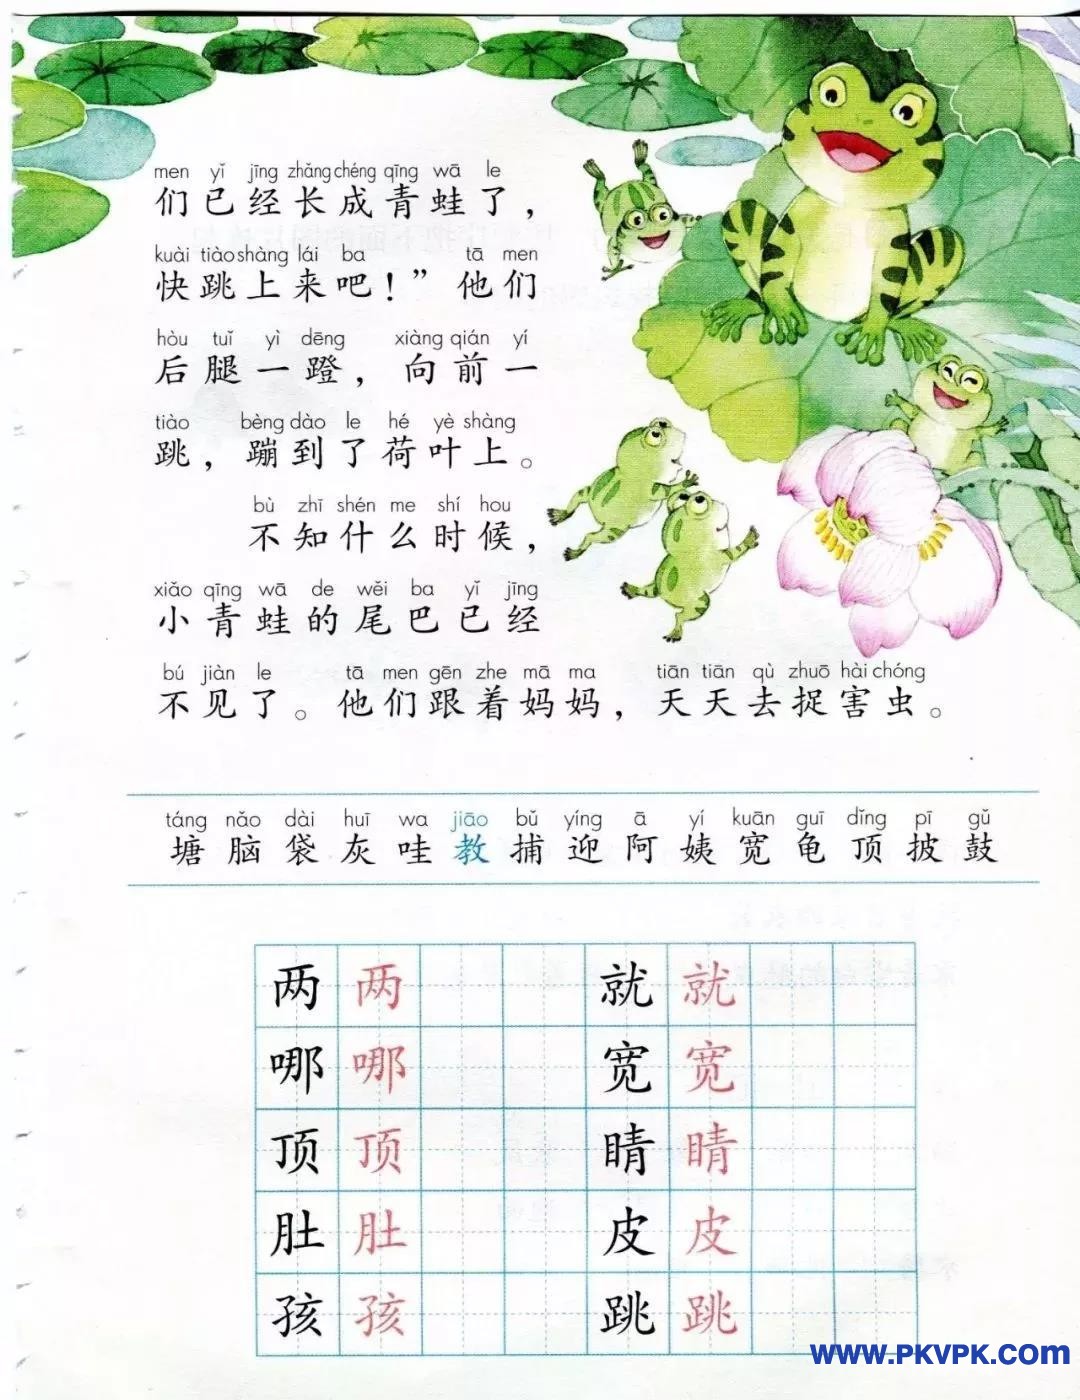 men yǐ jīng zhǎng chéng qīng wā le
们已经长成青蛙了，
kuài tiào shàng lái ba tā men
快跳上来吧！”他们
hòu tuǐ yì dēng xiàng qián yí
后腿一蹬，向前一
tiào bèng dào le hé yè shàng
跳，蹦到了荷叶上。
bù zhī shén me shí hou
不知什么时候，
xiǎo qīng wā de wěi ba yǐ jīng
小青蛙的尾巴已经
bú jiàn le tā men gēn zhe mā ma tiān tiān qù zhuō hài chóng
不见了。他们跟着妈妈，天天去捉害虫。
táng nǎo dài huī wa jiāo bǔ yíng ā yí kuān guī dǐng pī gǔ
塘脑袋灰哇教捕迎阿姨宽龟顶披鼓
两 两 就 就
哪 哪 宽 宽
顶 顶 睛 睛
肚 肚 皮 皮
孩 孩 跳 跳
www.PKVPK.com